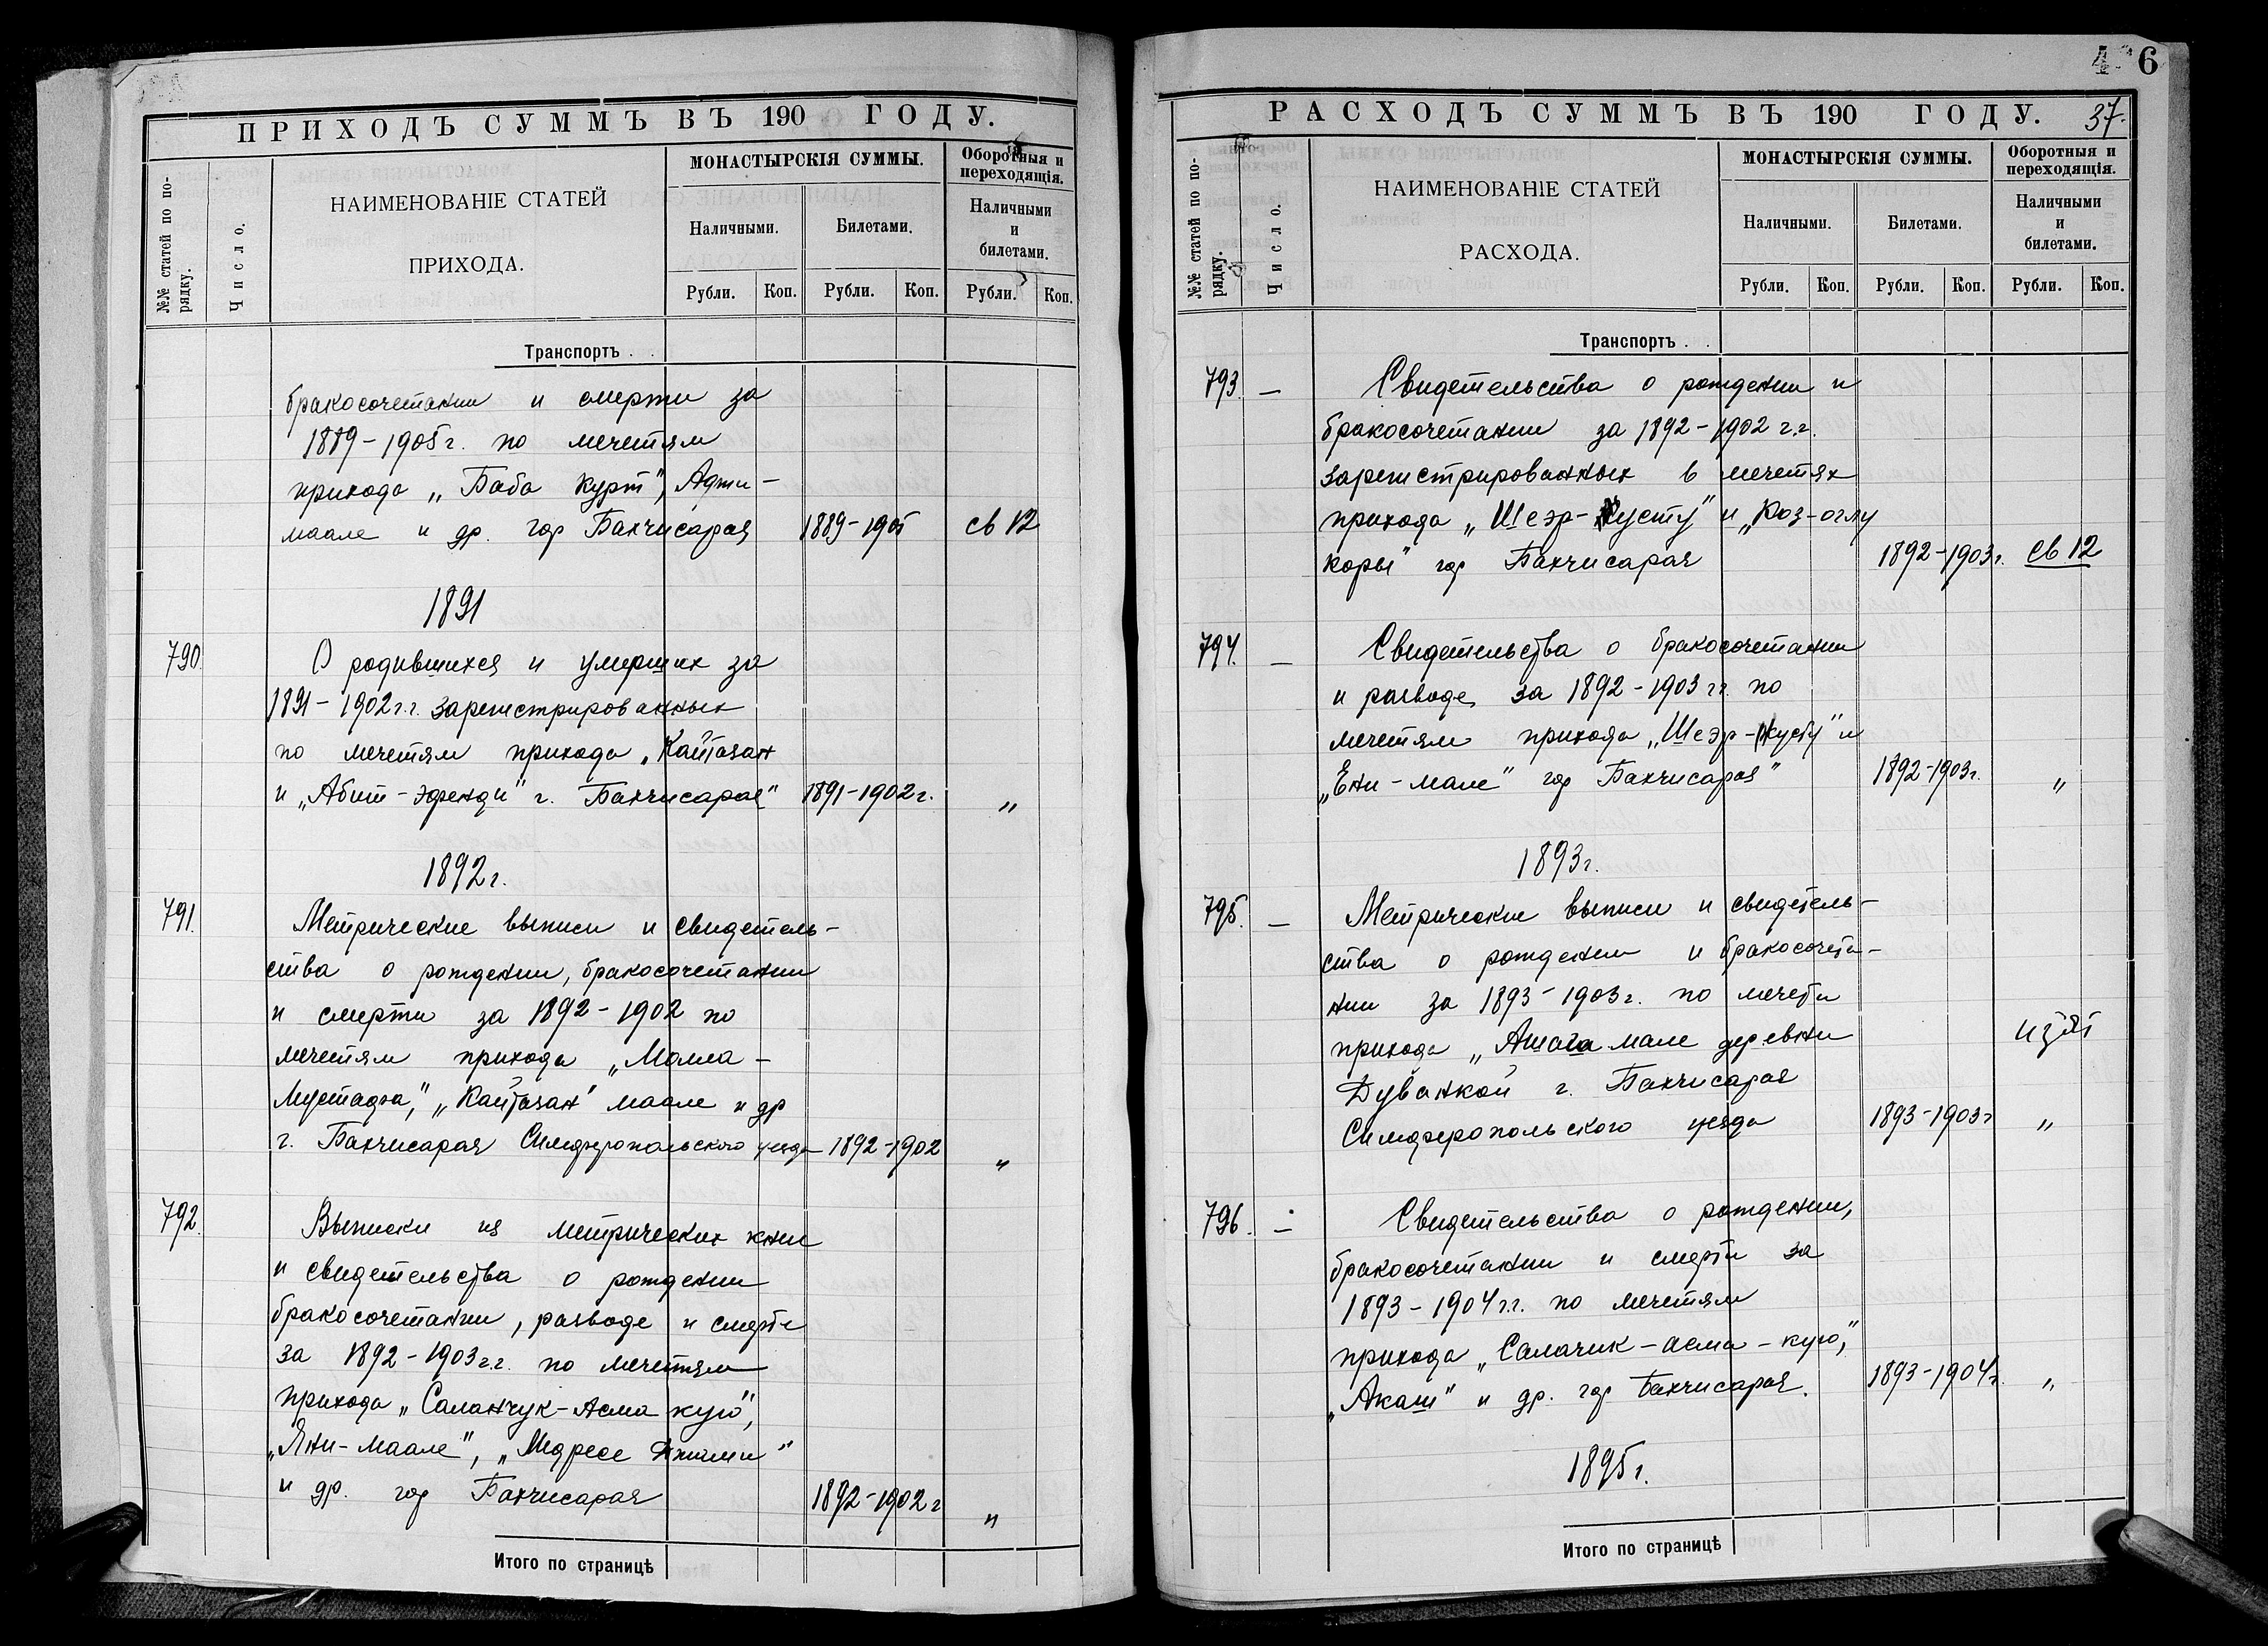 ПРИХОДЪ СУММЪ ВЪ 190 ГОДУ.
№№ статей по порядку.
Число.
НАИМЕНОВАНІЕ СТАТЕЙ
ПРИХОДА.
МОНАСТЫРСКІЯ СУММЫ.
Оборотныя и
переходящія.
Наличными.
Билетами.
Наличными
и
билетами.
Рубли. Коп. Рубли. Коп. Рубли. Коп.
Транспортъ . .
бракосочетании и смерти за
1889-1905 г. по мечетям
прихода „Баба Курт", Аджи-
маале и др. гор Бахчисарая 1889-1905 св 12
1891
790. О родившихся и умерших за
1891-1902 г.г. зарегистрированных
по мечетям прихода „Кайтазан
и „Абит-эфенди" г. Бахчисарая" 1891-1902 г. "
1892 г.
791. Метрические выписи и свидетель-
ства о рождении, бракосочетании
и смерти за 1892-1902 по
мечетям прихода „Молла-
Мустафа", „Кайтазан" маале и др
г. Бахчисарая Симферопольского уезда 1892-1902 "
792. Выписки из метрических книг
и свидетельства о рождении
бракосочетании, разводе и смерти
за 1892-1903 г.г. по мечетям
прихода „Саланчук-Асма кую",
„Яни-маале", „Медресе Джами"
и др. гор Бахчисарая 1892-1902 г "
Итого по страницѣ
6
РАСХОДЪ СУММЪ ВЪ 190 ГОДУ. 37.
№№ статей по порядку.
Число.
НАИМЕНОВАНІЕ СТАТЕЙ
РАСХОДА.
МОНАСТЫРСКІЯ СУММЫ.
Оборотныя и
переходящія.
Наличными.
Билетами.
Наличными
и
билетами.
Рубли. Коп. Рубли. Коп. Рубли. Коп.
Транспортъ . .
793. — Свидетельства о рождении и
бракосочетании за 1892-1902 г.г.
зарегистрированных в мечетях
прихода „Шеэр-Кусту" и „Коз-оглу
коры" гор Бахчисарая 1892-1903 г. св 12
794. — Свидетельства о бракосочетании
и разводе за 1892-1903 гг. по
мечетям прихода „Шеэр-Кусту" и
„Ени-мале" гор Бахчисарая" 1892-1903 г. "
1893 г.
795. — Метрические выписи и свидетель-
ства о рождении и бракосочета-
нии за 1893-1903 г. по мечети
прихода „Ашага мале деревни
Дуванкой г. Бахчисарая
Симферопольского уезда 1893-1903 г "
796. — Свидетельства о рождении,
бракосочетании и смерти за
1893-1904 г.г. по мечетям
прихода „Салачик-асма-кую",
„Акаш" и др. гор Бахчисарая. 1893-1904 г. "
1895 г.
Итого по страницѣ